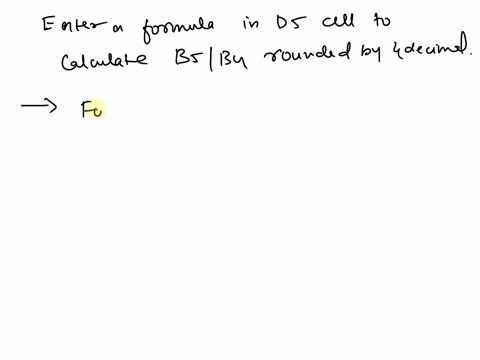 Enter a formula in D5 cell to
Calculate B5/B4 rounded by 4 decimal.
→ Fo